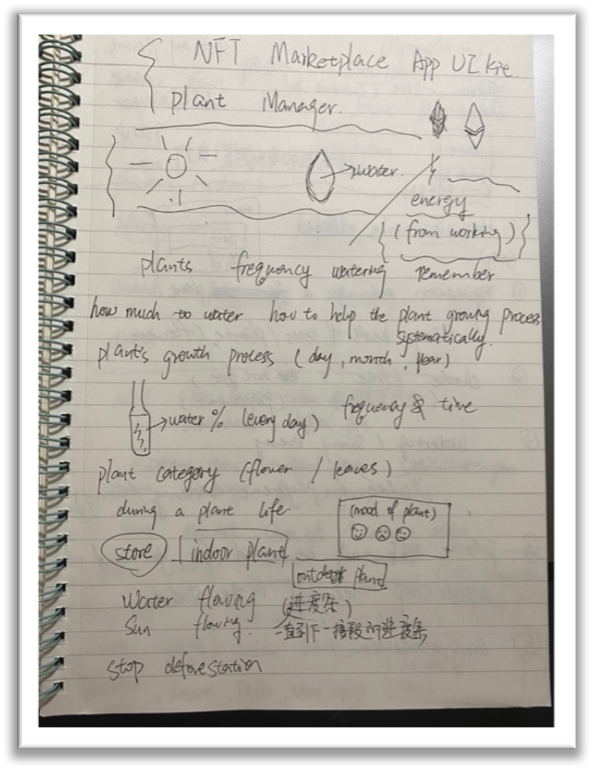 NFT Marketplace App UI Kit.
Plant Manager.
water.
energy
(from working)
plants frequency watering remember
how much to water how to help the plant growing process
systematically.
plant's growth process (day, month, year)
water % (every day) frequency & time
plant category (flower / leaves)
during a plant life
(mood of plant)
store indoor plant
outdoor plant
Water flowing (进度条)
Sun flowing. 一直到下一阶段的进度条
stop deforestation